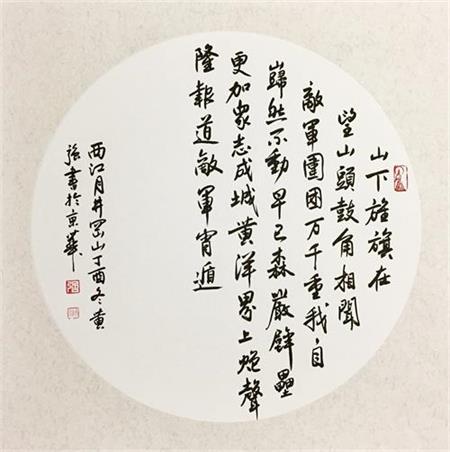 山下旌旗在
望山頭鼓角相聞
敵軍圍困万千重我自
巋然不動早已森嚴壁壘
更加衆志成城黄洋界上炮聲
隆報道敵軍宵遁
西江月井岡山丁酉冬黄
强書於京華